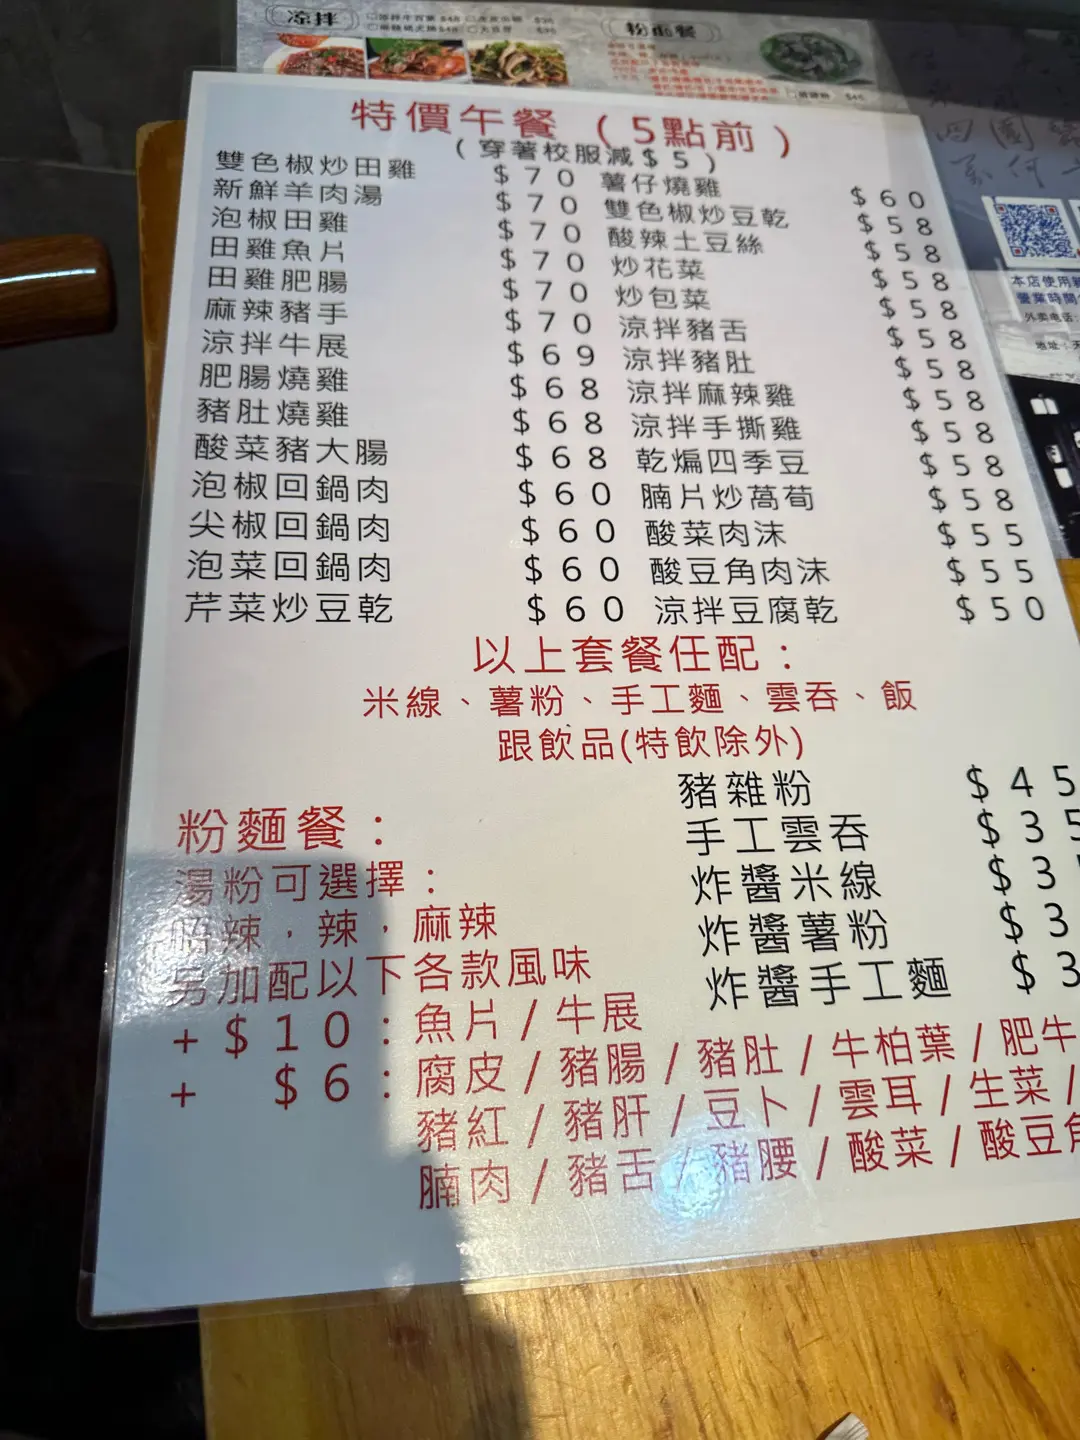 涼拌
粉麵餐
特價午餐（5點前）
（穿著校服減$5）
雙色椒炒田雞 $70 薯仔燒雞 $60
新鮮羊肉湯 $70 雙色椒炒豆乾 $58
泡椒田雞 $70 酸辣土豆絲 $58
田雞魚片 $70 炒花菜 $58
田雞肥腸 $70 炒包菜 $58
麻辣豬手 $70 涼拌豬舌 $58
涼拌牛展 $69 涼拌豬肚 $58
肥腸燒雞 $68 涼拌麻辣雞 $58
豬肚燒雞 $68 涼拌手撕雞 $58
酸菜豬大腸 $68 乾煸四季豆 $58
泡椒回鍋肉 $60 腩片炒萵荀 $58
尖椒回鍋肉 $60 酸菜肉沫 $55
泡菜回鍋肉 $60 酸豆角肉沫 $55
芹菜炒豆乾 $60 涼拌豆腐乾 $50
以上套餐任配：
米線、薯粉、手工麵、雲吞、飯
跟飲品(特飲除外)
豬雜粉 $45
手工雲吞 $35
炸醬米線 $3
炸醬薯粉 $3
炸醬手工麵 $3
粉麵餐：
湯粉可選擇：
唔辣，辣，麻辣
另加配以下各款風味
+$10：魚片/牛展
+ $6：腐皮/豬腸/豬肚/牛柏葉/肥牛
豬紅/豬肝/豆卜/雲耳/生菜/
腩肉/豬舌/豬腰/酸菜/酸豆角
本店使用
營業時間
外卖电话:
地址: